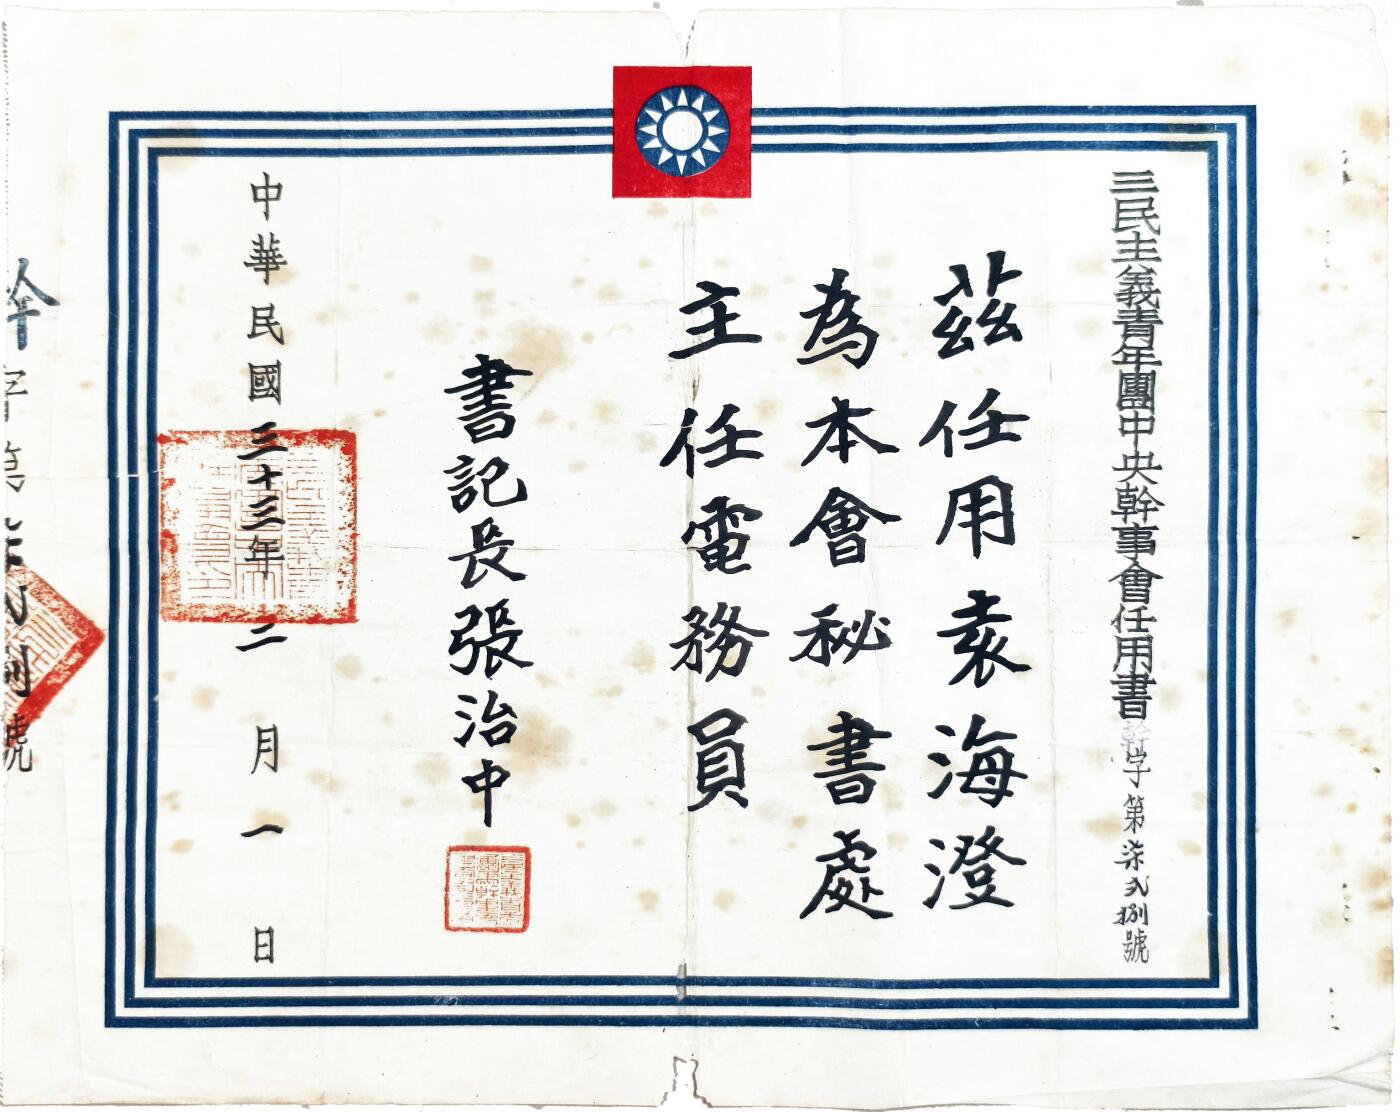 三民主義青年團中央幹事會任用書 幹字第柒弍捌號
茲任用袁海澄
為本會秘書處
主任電務員
書記長張治中
中華民國三十三年二月一日
幹字第柒弍捌號